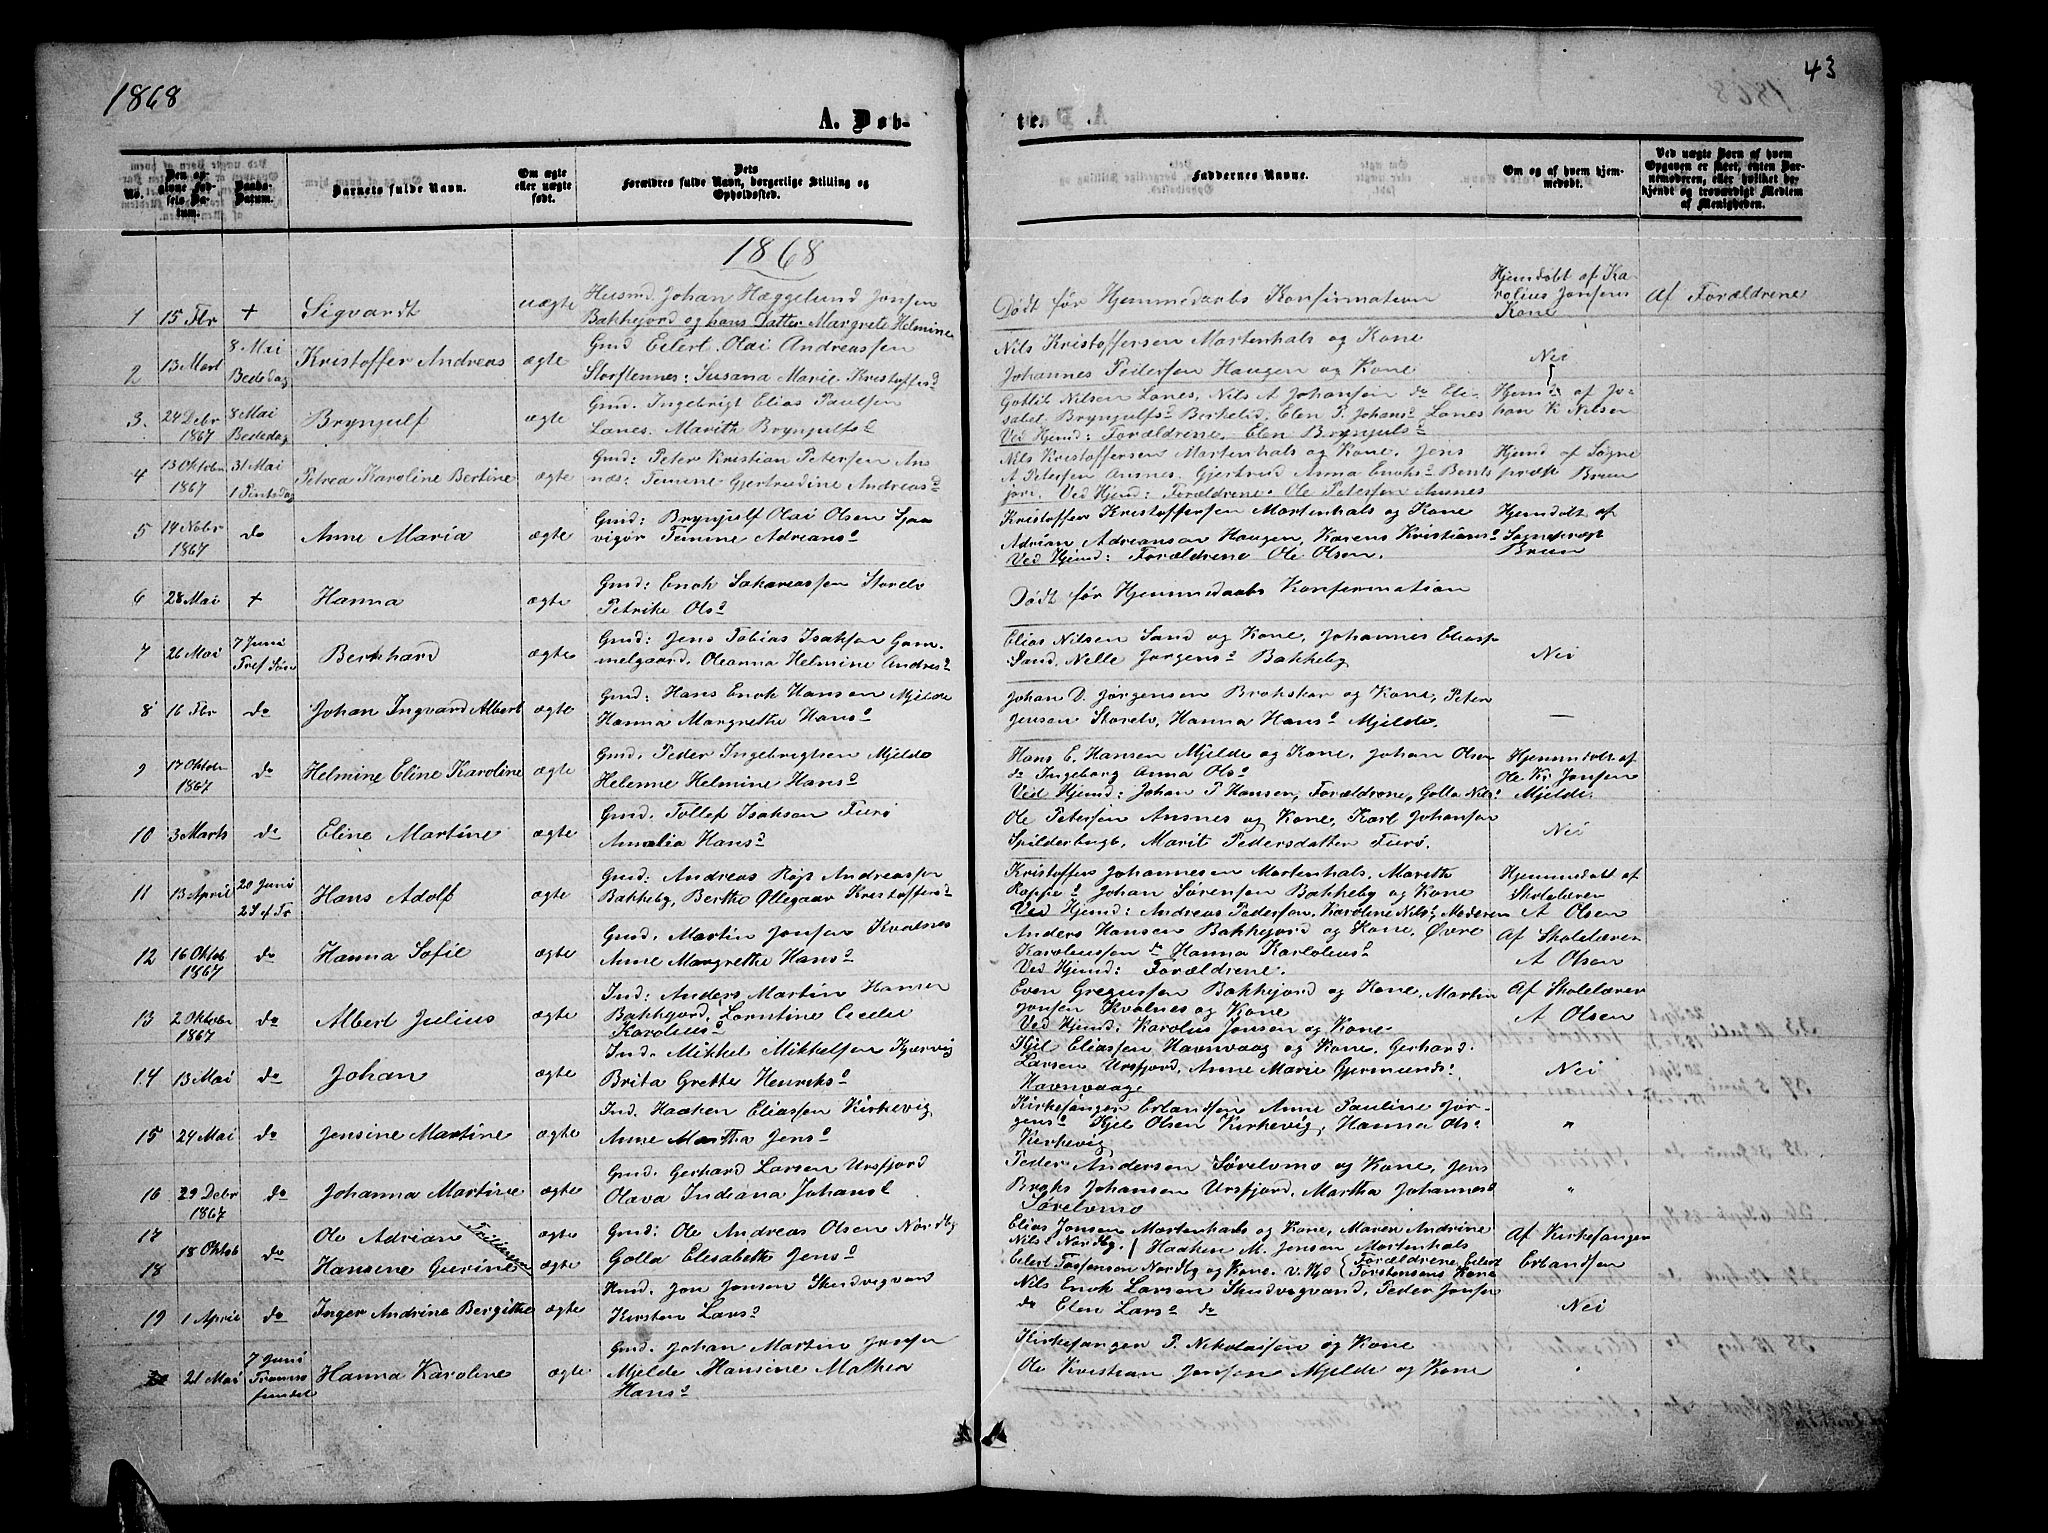 1868
43
A. Døb-
te.
No.
Den op-
givne Fød-
sels Da-
tum.
Daabs-
Datum.
Barnets fulde Navn.
Om ægte
eller uægte
født.
Dets
Forældres fulde Navn, borgerlige Stilling og
Opholdssted.
Faddernes Navne.
Om og af hvem hjem-
medøbt.
Ved uægte Børn af hvem
Opgaven er skeet, enten Bar-
nemoderen, eller hvilket be-
kjendt og troværdigt Medlem
af Menigheden.
1868
1 15 Fbr + Sigvardt uægte
Husmd. Johan Hæggelund Jonsen
Bakkejord og hans Datter Margrete Helmine
Dødt før Hjemmedaabs Konfirmation
Hjemdøbt af Ka-
rolius Jonsens
Kone
Af Forældrene
2 13 Mart 8 Mai
Bededag
Kristoffer Andreas ægte
Gmd Eilert Olai Andreassen
Storslennes: Susana Marie Kristoffersd
Nils Kristoffersen Martenhals og Kone
Johannes Pedersen Haugen og Kone
Nei
3. 24 Debr
1867
8 Mai
Bededag
Brynjulf ægte
Gmd. Ingebrigt Elias Paulsen
Lanes. Marith Brynjulfsd
Gotlib Nilsen Lanes, Nils A Johansen do Eli-
sabet Brynjulfsd Berkelid, Elen P. Johansd Lanes
Ved Hjemd: Forældrene, Elen Brynjulsd
Hjemd. af Jo-
han K Nilsen
4 13 Oktober
1867
31 Mai
1 Pintsdag
Petrea Karoline Bertine ægte
Gmd: Peter Kristian Petersen An
næs: Temine Gjertrudine Andreasd
Nils Kristoffersen Martenhals og Kone, Jens
A Petersen Ansnes, Gjertrud Anna Enoksd Bents
jord. Ved Hjemd: Forældrene. Ole Petersen Ansnes
Hjemd af Sogne
præst Brun
5 14 Nobr
1867
do Anne Maria ægte
Gmd: Brynjulf Olai Olsen
Temine Adriansd
Kristoffer Kristoffersen Martenhals og Kone
Adrian Adriansen Haugen, Karens Kristiansd
Ved Hjemd: Forældrene Ole Olsen.
Hjemdøbt af
Sognepræst
Brun
6 28 Mai + Hanna ægte
Gmd: Enok Sakariassen Storelv
Petrike Olsd
Dødt før Hjemmedaabs Konfermation
7 26 Mai 7 Juni
Tref Søn
Bernhard ægte
Gmd: Jens Tobias Isaksen Gam-
melgaard. Oleanna Helmine Andresd
Elias Nilsen Sand og Kone, Johannes Eliass
Sand, Nelle Jørgensd Bakkeby
Nei
8 16 Fbr do Johan Ingvard Albert ægte
Gmd: Hans Enok Hansen Mjelde
Hanna Margrethe Hansd
Johan D. Jørgensen Brokskar og Kone, Peter
Jensen Storelv, Hanna Hansd Mjelde.
—
9 17 Oktobr
1867
do Helmine Eline Karoline ægte
Gmd. Peder Ingebrigtsen Mjelde
Helenne Helmine Hansd
Hans E. Hansen Mjelde og Kone, Johan Olsen
do Ingeborg Anna Olsd
Ved Hjemd: Johan P Hansen, Forældrene, Golla Nilsd
Hjemmdøbt af
Ole Kr Jonsen
Mjelde.
10 3 Marts do Eline Martine ægte
Gmd. Tollef Isaksen Furø
Amalia Hansd
Ole Petersen Ansnes og Kone, Karl Johansen
Spilderbugt, Marit Pedersdatter Furø.
Nei
11 13 April 20 Juni
2 S ef Tr
Hans Adolf ægte
Gmd: Andreas Røst Andreassen
Bakkeby, Berthe Ollegaar Kristoffersd
Kristoffer Johannesen Martenhals, Marethe
Roppesd Johan Sørensen Bakkeby og Kone
Ved Hjemd: Andreas Pedersen, Karoline Nilsd, Moderen
Hjemmedøbt af
Skolelærer
A Olsen
12 16 Oktob
1867
do Hanna Sofie ægte
Gmd. Martin Jonsen Kvalnes
Anne Margrethe Hansd
Anders Hansen Bakkejord og Kone, Øvre
Karoliussen do Hanna Karloliusd
Ved Hjemd: Forældrene.
Af Skolelærer
A Olsen
13 2 Oktober
1867
do Albert Julius ægte
Ind: Anders Martin Hansen
Bakkejord, Lorntine Cecelie
Karoliusd
Even Gregussen Bakkejord og Kone, Martin
Jonsen Kvalnes og Kone
Ved Hjemd: Karolus Jonsen og Kone
Af Skolelærer
A Olsen
14 13 Mai do Johan ægte
Ind. Mikkel Mikkelsen Kjærvig
Brita Grette Henriksd
Kjil Eliassen Havnvaag og Kone, Gerhard
Larsen Ursfjord, Anne Marie Gjermundsd
Havnvaage
Nei
15 24 Mai do Jensine Martine ægte
Ind. Haaken Eliassen Kirkevig
Anne Martha Jensd
Kirkesanger Erlandsen Anne Pauline Jør-
gensd Kjel Olsen Kirkevig, Hanna Olsd
Kirkevig
"
16 29 Debr
1867
do Johanna Martine ægte
Gmd. Gerhard Larsen Ursfjord
Olava Indiana Johansd
Peder Andersen Sørelvmo og Kone, Jens
Broks Johansen Ursfjord. Martha Johannesd
Sørelvmo
"
17 Ole Adrian Tvillinger ægte
18 Oktob do
18 Hansine Gurine ægte
Gmd: Ole Andreas Olsen Nordby
Golla Elisabeth Jensd
Elias Jonsen Martenhals og Kone, Maren Andrine
Nilsd Nordby. Haaken M. Jensen Martenhals
Eilert Tostensen Nordby og Kone. V. Hjd Forældrene, Eilert
Torstensens Kone
Af Kirkesanger
Erlandsen
19 1 April do Inger Andrine Bergitha ægte
Husd. Jon Jonsen Skudvegvand
Kirsten Larsd
Nils Enok Larsen Skudvegvand, Peder Jonsen
do Elen Larsd do
Nei
20 21 Mai 7 Juni
Tromsø
sundet
Hanna Karoline ægte
Gmd. Johan Martin Jensen
Mjelde Hansine Mathea
Hansd
Kirkesanger P. Nikolaisen og Kone
Ole Kristian Jonsen Mjelde og Kone
"